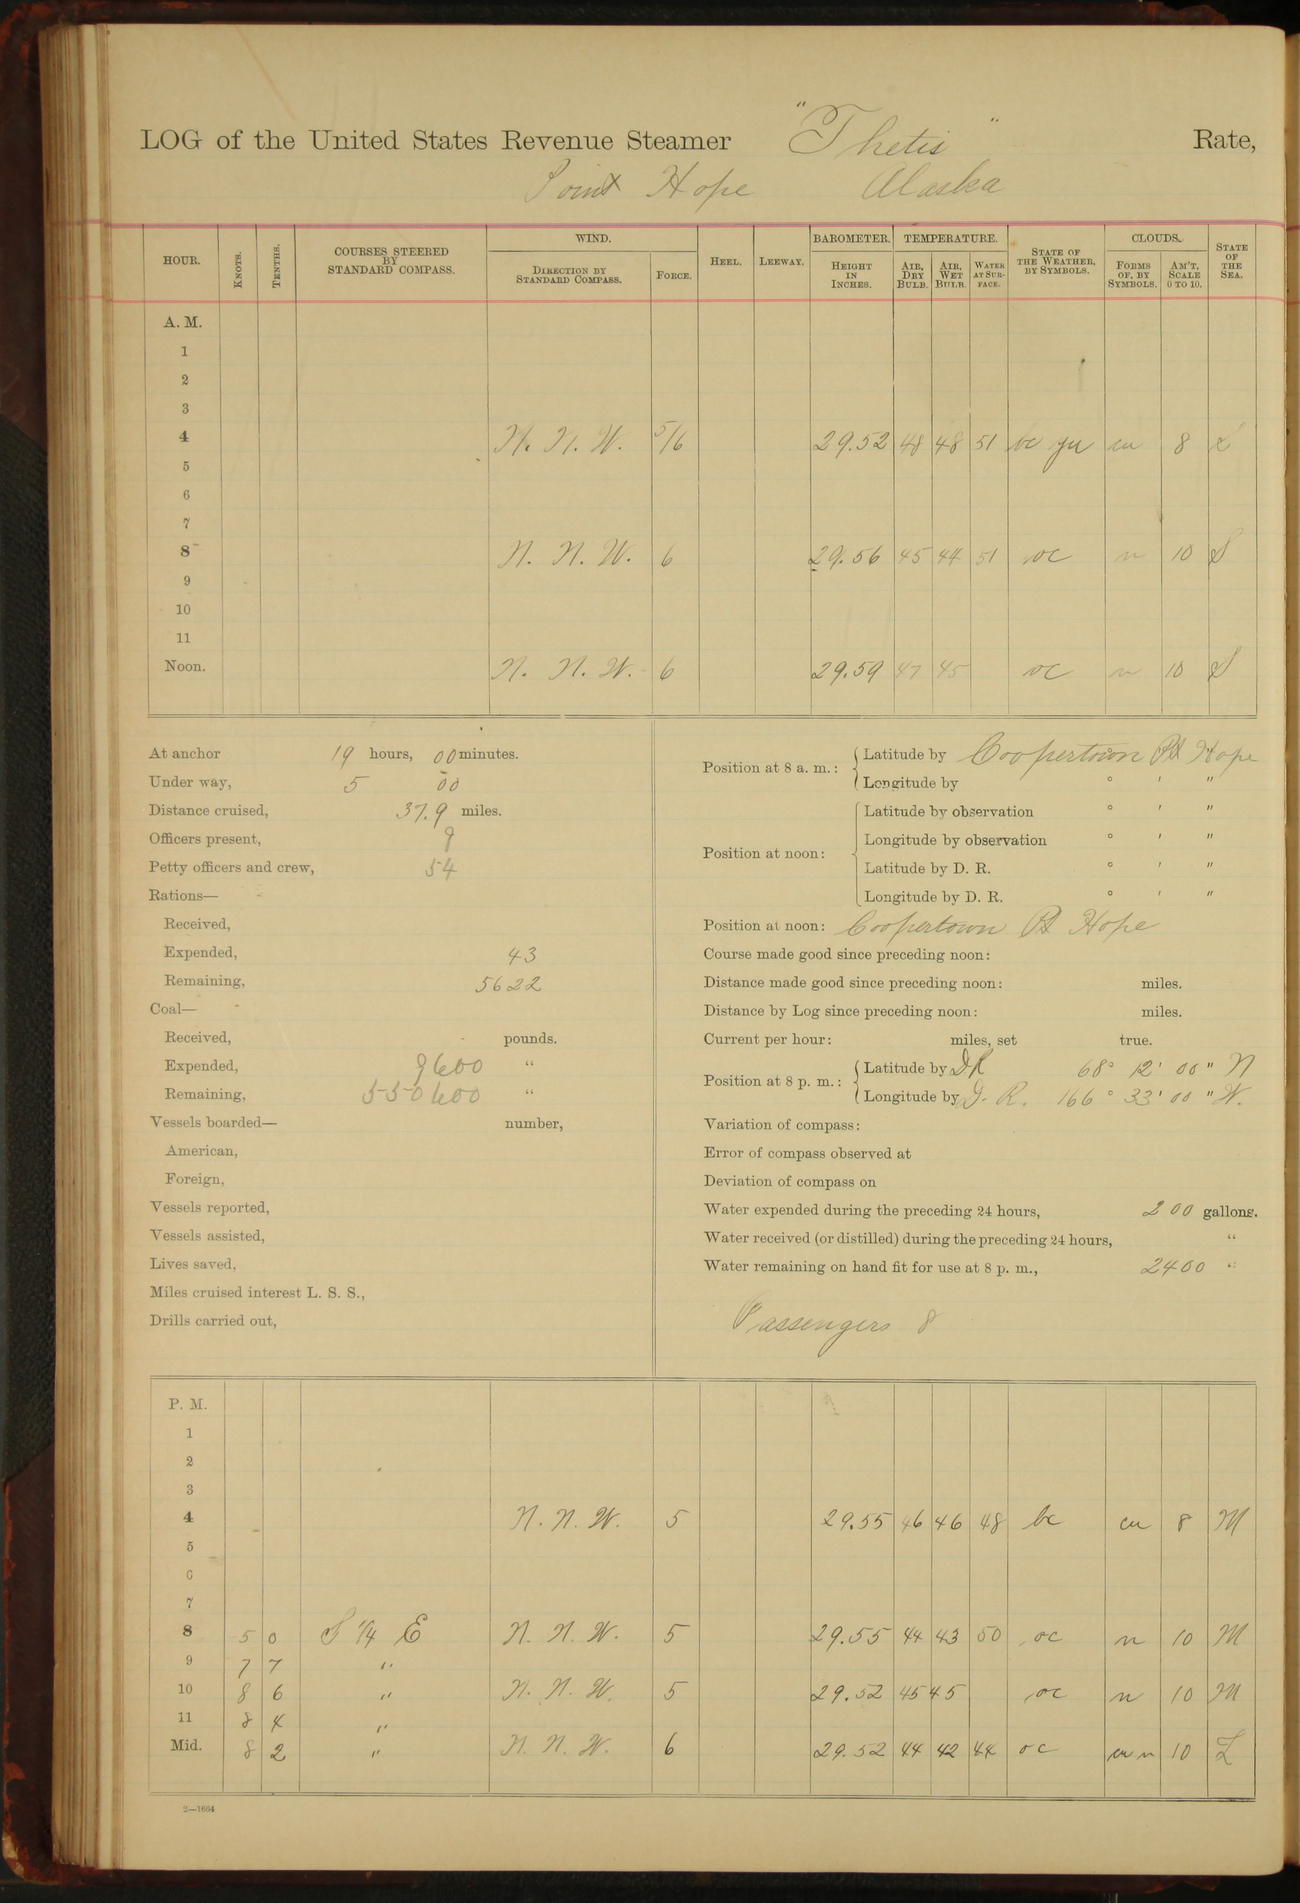 LOG of the United States Revenue Steamer "Thetis" Rate,
Point Hope Alaska
HOUR. KNOTS. TENTHS. COURSES STEERED BY STANDARD COMPASS. WIND. DIRECTION BY STANDARD COMPASS. FORCE. HEEL. LEEWAY. BAROMETER. HEIGHT IN INCHES. TEMPERATURE. AIR, DRY BULB. AIR, WET BULB. WATER AT SURFACE. STATE OF THE WEATHER, BY SYMBOLS. CLOUDS. FORMS OF, BY SYMBOLS. AM'T, SCALE 0 TO 10. STATE OF THE SEA.
A. M.
1
2
3
4 N. N. W. 5/6 29.52 48 48 51 bc cu 8
5
6
7
8 N. N. W. 6 29.56 45 44 51 oc n 10 S
9
10
11
Noon. N. N. W. 6 29.59 47 45 oc n 10 S
At anchor 19 hours, 00 minutes.
Under way, 5 00
Distance cruised, 37.9 miles.
Officers present, 9
Petty officers and crew, 54
Rations—
Received,
Expended, 43
Remaining, 5622
Coal—
Received, pounds.
Expended, 9600 "
Remaining, 550600 "
Vessels boarded— number,
American,
Foreign,
Vessels reported,
Vessels assisted,
Lives saved,
Miles cruised interest L. S. S.,
Drills carried out,
Position at 8 a. m.: Latitude by Coopertown Pt Hope
Longitude by ° ′ ″
Position at noon: Latitude by observation ° ′ ″
Longitude by observation ° ′ ″
Latitude by D. R. ° ′ ″
Longitude by D. R. ° ′ ″
Position at noon: Coopertown Pt Hope
Course made good since preceding noon:
Distance made good since preceding noon: miles.
Distance by Log since preceding noon: miles.
Current per hour: miles, set true.
Position at 8 p. m.: Latitude by DR 68° 12′ 00″ N
Longitude by D. R. 166° 33′ 00″ W.
Variation of compass:
Error of compass observed at
Deviation of compass on
Water expended during the preceding 24 hours, 200 gallons.
Water received (or distilled) during the preceding 24 hours, "
Water remaining on hand fit for use at 8 p. m., 2400 "
Passengers 8
P. M.
1
2
3
4 N. N. W. 5 29.55 46 46 48 bc cu 8 M
5
6
7
8 5 0 S 1/4 E N. N. W. 5 29.55 44 43 50 oc n 10 M
9 7 7 "
10 8 6 " N. N. W. 5 29.52 45 45 oc n 10 M
11 8 4 "
Mid. 8 2 " N. N. W. 6 29.52 44 42 44 oc cu n 10 L
2—1664